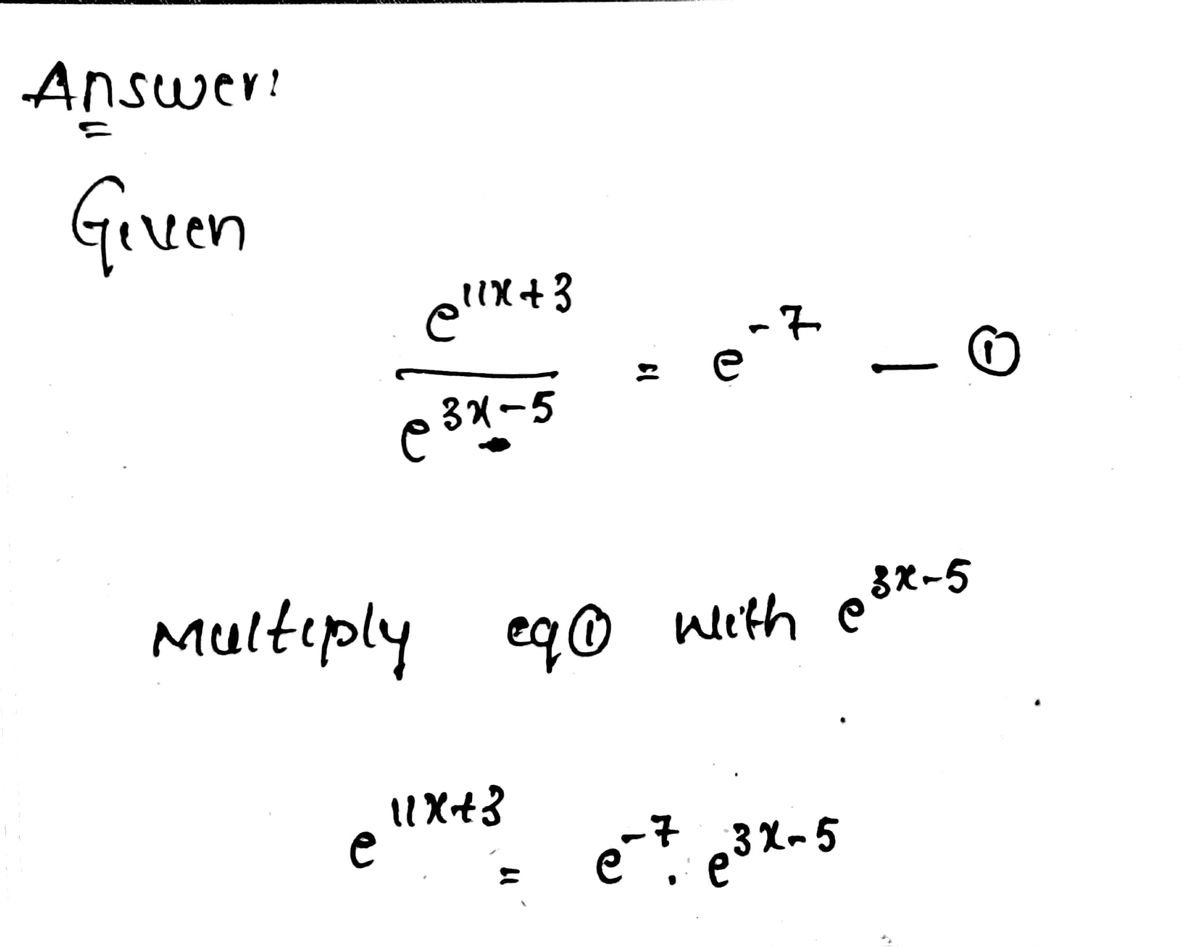 Answer:
Given
e^{11x+3} / e^{3x-5} = e^{-7} — ①
Multiply eq① with e^{3x-5}
e^{11x+3} = e^{-7} . e^{3x-5}